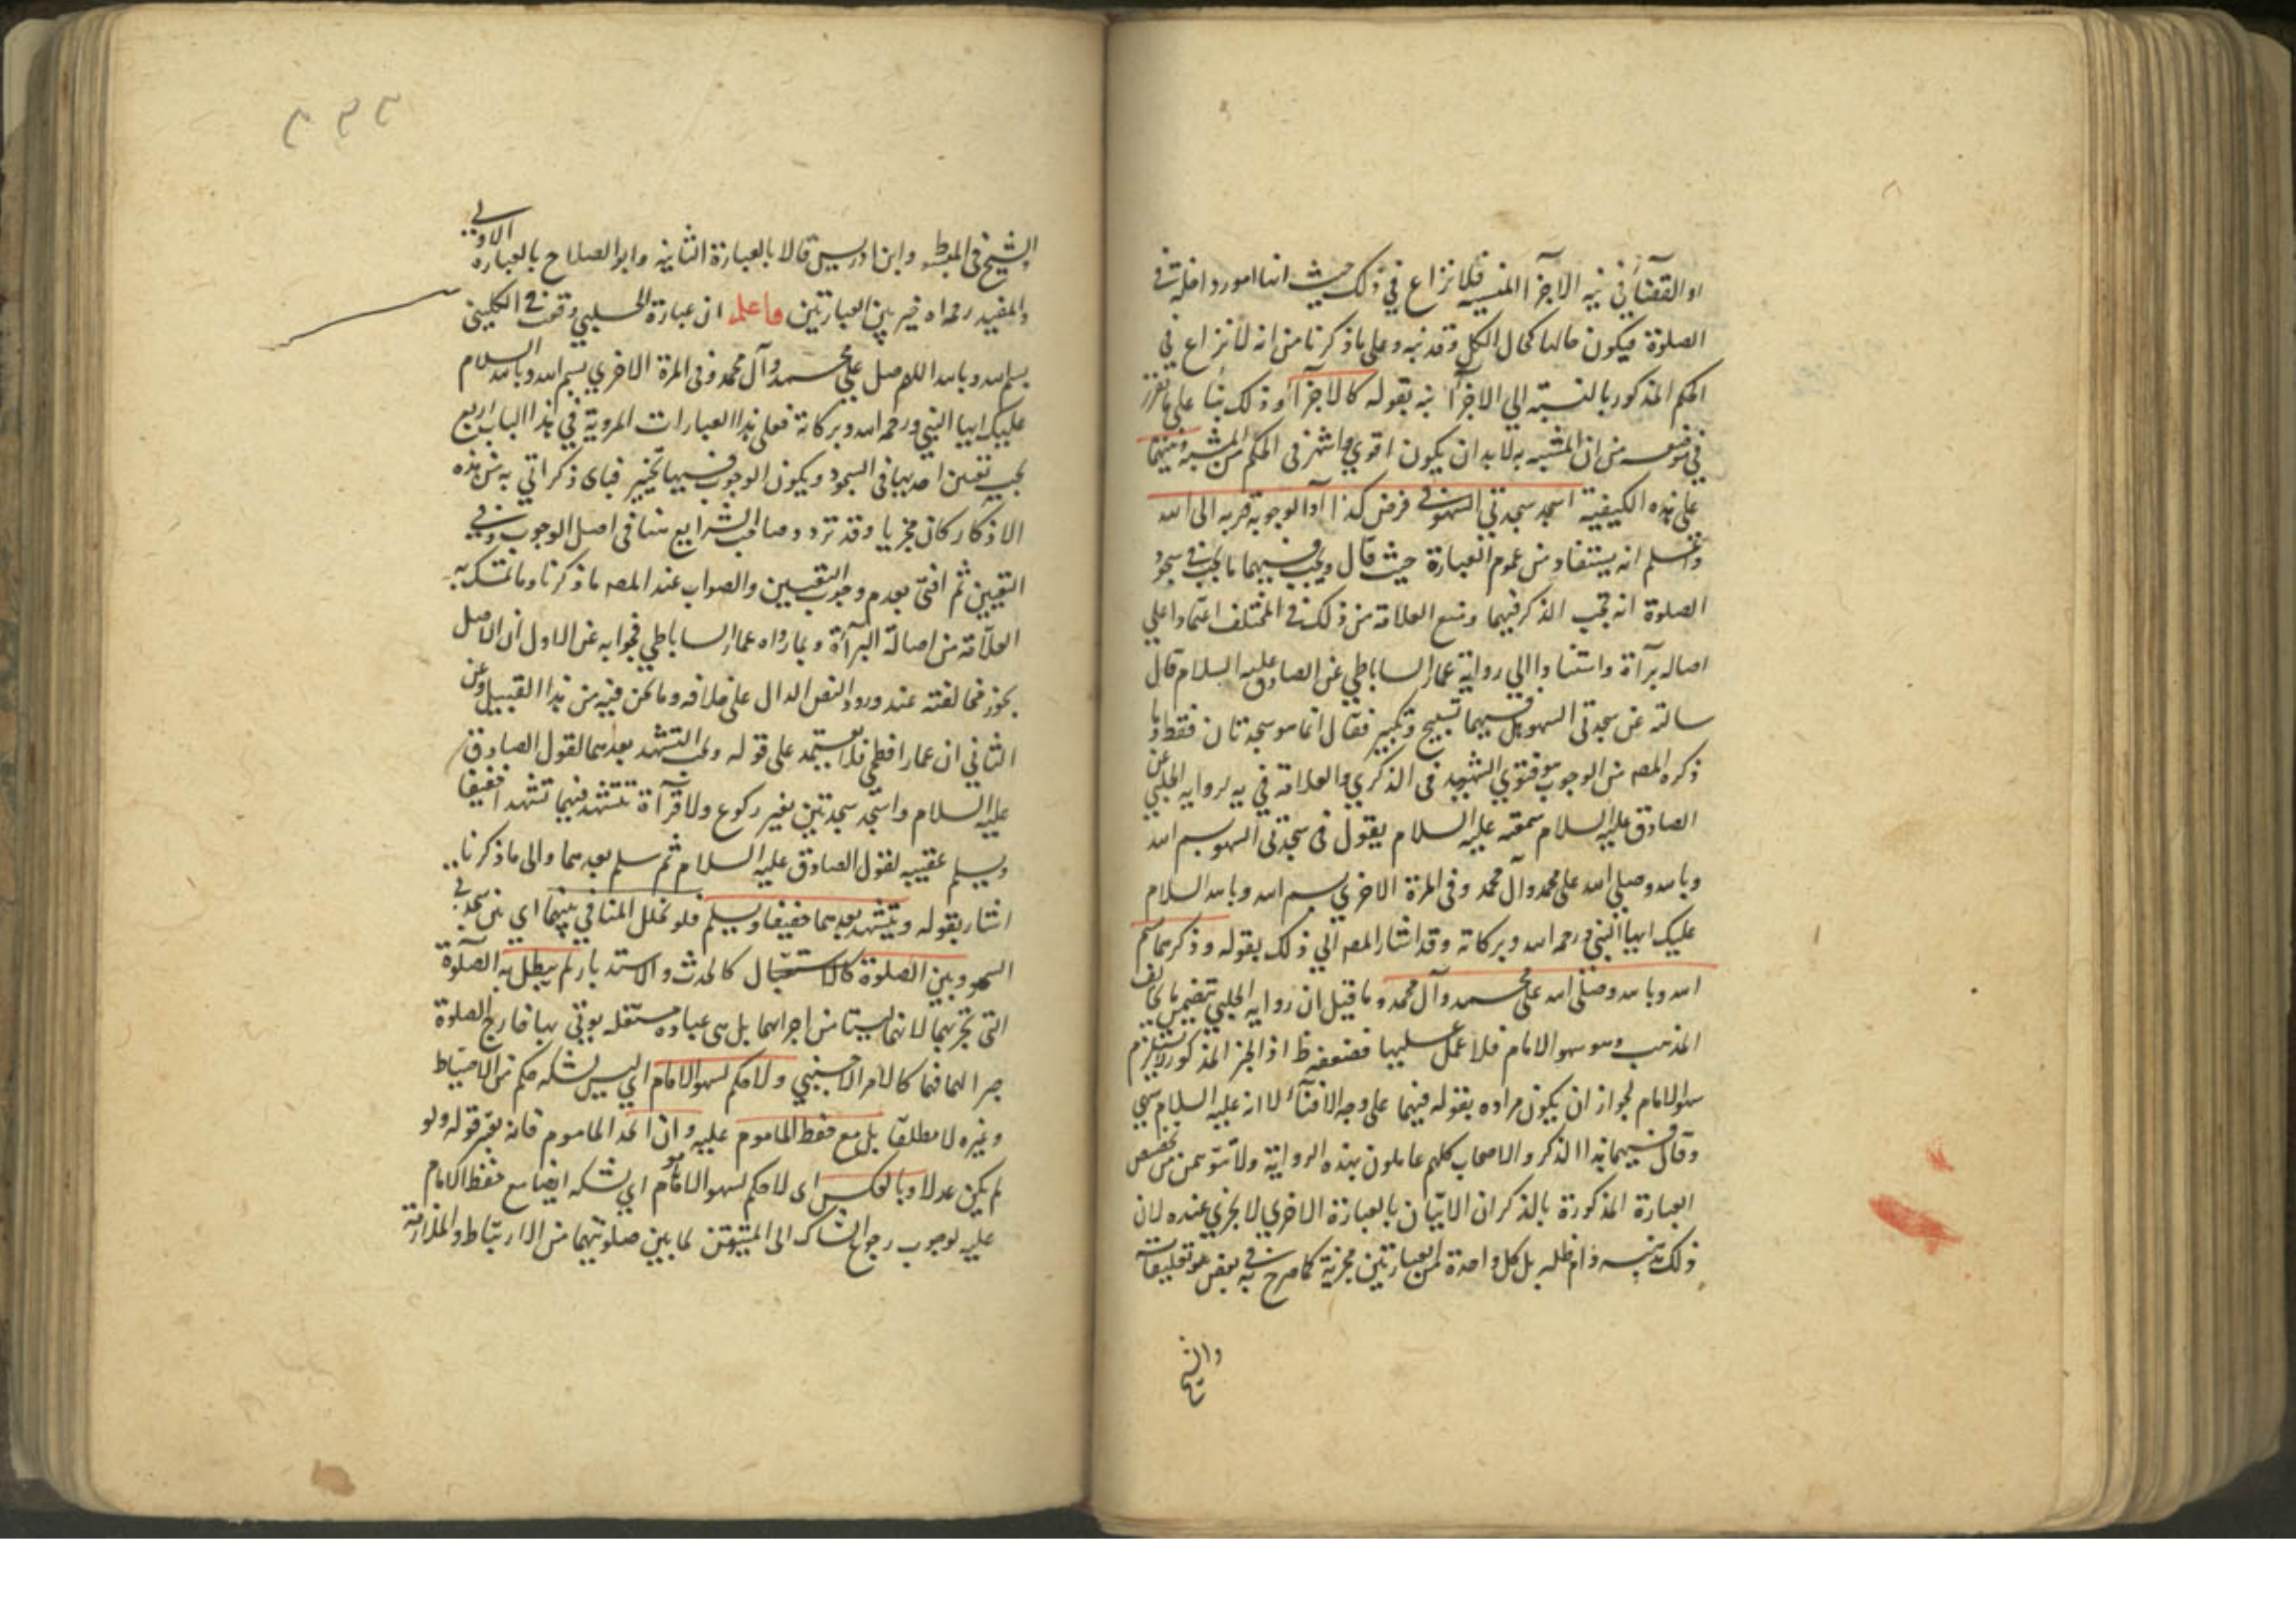 او القضآء في نية الاجزآ المنسية فلا نزاع في ذلك حيث انها امور داخلة في
الصلوة فيكون حالها كحال الكل وقد نبه وعلى ما ذكرنا من انه لا نزاع في
الحكم المذكور بالنسبة الي الاجزآ نبه بقوله كالاجزآ وذلك بنآ على ما تقرر
في موضعه من ان المشبه به لا بد ان يكون اقوي واشهر في الحكم من المشبه ونيتهما
على هذه الكيفية اسجد سجدتي السهو في فرض كذا ادآ لوجوبه قربه الى الله
واعلم انه يستفاد من عموم العبارة حيث قال ويجب فيهما ما يجب في سجود
الصلوة انه تجب الذكر فيهما ومنع العلامة من ذلك في المختلف اعتمادا علي
اصاله برآءة واستنادا الي رواية عمار الساباطي عن الصادق عليه السلام قال
سالته عن سجدتى السهو هل فيهما تسبيح وتكبير فقال انما هو سجدتان فقط وما
ذكره المصه من الوجوب هو فتوي الشهيد فى الذكري والعلامة في يه لروايه الحلبي عن
الصادق عليه السلام سمعته عليه السلام يقول فى سجدتى السهو بسم الله
وبالله وصلى الله على محمد وآل محمد وفى المرة الاخري بسم الله وبالله السلام
عليك ايها النبي ورحمه الله وبركاته وقد اشار المصه الي ذلك بقوله وذكرهما بسم
الله وبالله وصلى الله على محمد وآل محمد وما قيل ان روايه الحلبي تتضمن ما يخالف
المذهب وهو سهو الامام فلا عمل عليها فضعفه ظ اذ الخبر المذكور لا يستلزم
سهو الامام لجواز ان يكون مراده بقوله فيهما على وجه الافتآء لا انه عليه السلام سهي
وقال فيهما هذا الذكر والاصحاب كلهم عاملون بهذه الرواية ولا تتوهمن من تخصيص
العبارة المذكورة بالذكر ان الاتيان بالعبارة الاخري لا يجزي عنده لان
ذلك مذهبه بل كل واحدة من العبارتين مجزية كما صرح به في بعض تعليقاته
والشيخ
٢٣٣
الشيخ في المبسط وابن ادريس قالا بالعبارة الثانية وابو الصلاح بالعباره الاولي
والمفيد رحمه الله خير بين العبارتين واعلم ان عبارة الحلبي وقعت في الكليني
بسم الله وبالله اللهم صل على محمد وآل محمد وفى المرة الاخري بسم الله وبالله السلام
عليك ايها النبي ورحمه الله وبركاته فعلى هذا العبارات المروية في هذا الباب اربع
يجب تعين احديها فى السجود ويكون الوجوب فيها تخيير فباى ذكر اتي به من هذه
الاذكار كان مجزيا وقد تردد صاحب الشرايع هنا فى اصل الوجوب وفي
التعيين ثم افتى بعدم وجوب التعيين والصواب عند المصه ما ذكرنا وما تمسك به
العلامة من اصالة البرآءة وبما رواه عمار الساباطي فجوابه عن الاول ان الاصل
يجوز مخالفته عند ورود النص الدال على خلافه وما نحن فيه من هذا القبيل وعن
الثاني ان عمارا فطحي فلا يعتمد على قوله ويجب التشهد بعدهما لقول الصادق
عليه السلام واسجد سجدتين بغير ركوع ولا قرآءة تتشهد فيهما تشهدا خفيفا
ويسلم عقيبه لقول الصادق عليه السلام ثم سلم بعدهما والى ما ذكرنا
اشار بقوله ويتشهد بعدهما خفيفا ويسلم فلو تخلل المنافي بينهما اي بين سجدتي
السهو وبين الصلوة كالحدث والاستدبار لم يبطل به الصلوة
التى تجز بهما لانهما ليستا من اجزائها بل هى عباده مستقله يوتى بها خارج الصلوة
جبرا لما فيها كالامر الاجنبي ولا حكم لسهو الامام اي ليس لشكه حكم من الاحتياط
وغيره لا مطلقا بل مع حفظ الماموم عليه وان اتحد الماموم فانه يعتبر قوله ولو
لم يكن عدلا وبالعكس اى لا حكم لسهو الماموم اي لشكه ايضا مع حفظ الامام
عليه لوجوب رجوع الشاك الى المتيقن لما بين صلوتيهما من الارتباط والملازمة